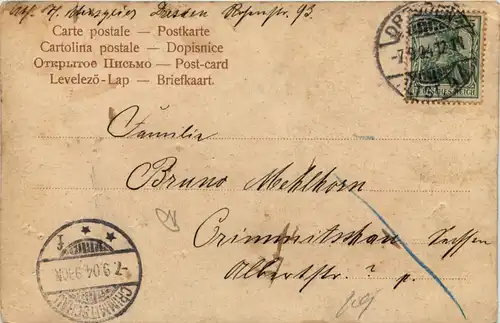 Dresden Rosenstr. 93.
Carte postale — Postkarte
Cartolina postale — Dopisnice
Открытое Письмо — Post-card
Levelező-Lap — Briefkaart.
DRESDEN
REICH
Familie
Bruno Mehlhorn
Crimmitschau Sachsen
Albertstr. ? p.
7.9.04
CRIMMITSCHAU